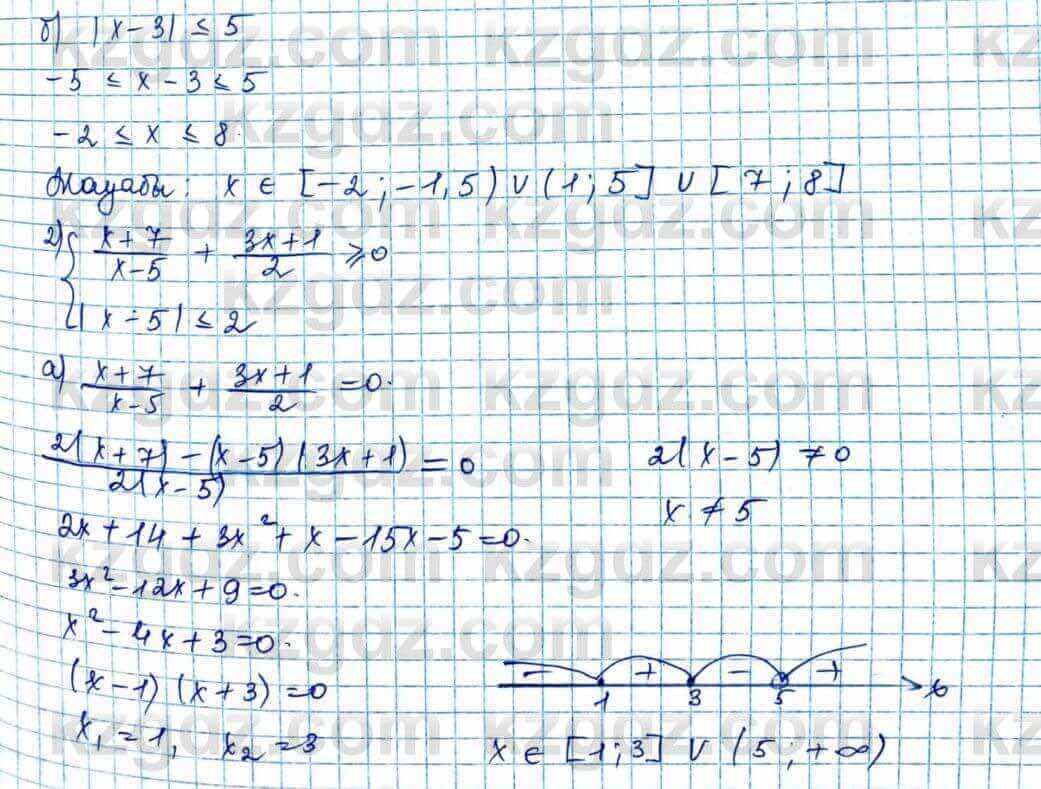 б) |x-3| ≤ 5
-5 ≤ x-3 ≤ 5
-2 ≤ x ≤ 8.
Жауабы: x ∈ [-2; -1,5) ∪ (1; 5] ∪ [7; 8]
2) { (x+7)/(x-5) + (3x+1)/2 ≥ 0
|x-5| ≤ 2
а) (x+7)/(x-5) + (3x+1)/2 = 0.
(2(x+7) - (x-5)(3x+1))/(2(x-5)) = 0 2(x-5) ≠ 0
x ≠ 5
2x+14+3x²+x-15x-5=0.
3x²-12x+9=0.
x²-4x+3=0.
(x-1)(x+3)=0
- + - + x
1 3 5
x₁=1, x₂=3
x ∈ [1; 3] ∪ (5; +∞)
kzgdz.com